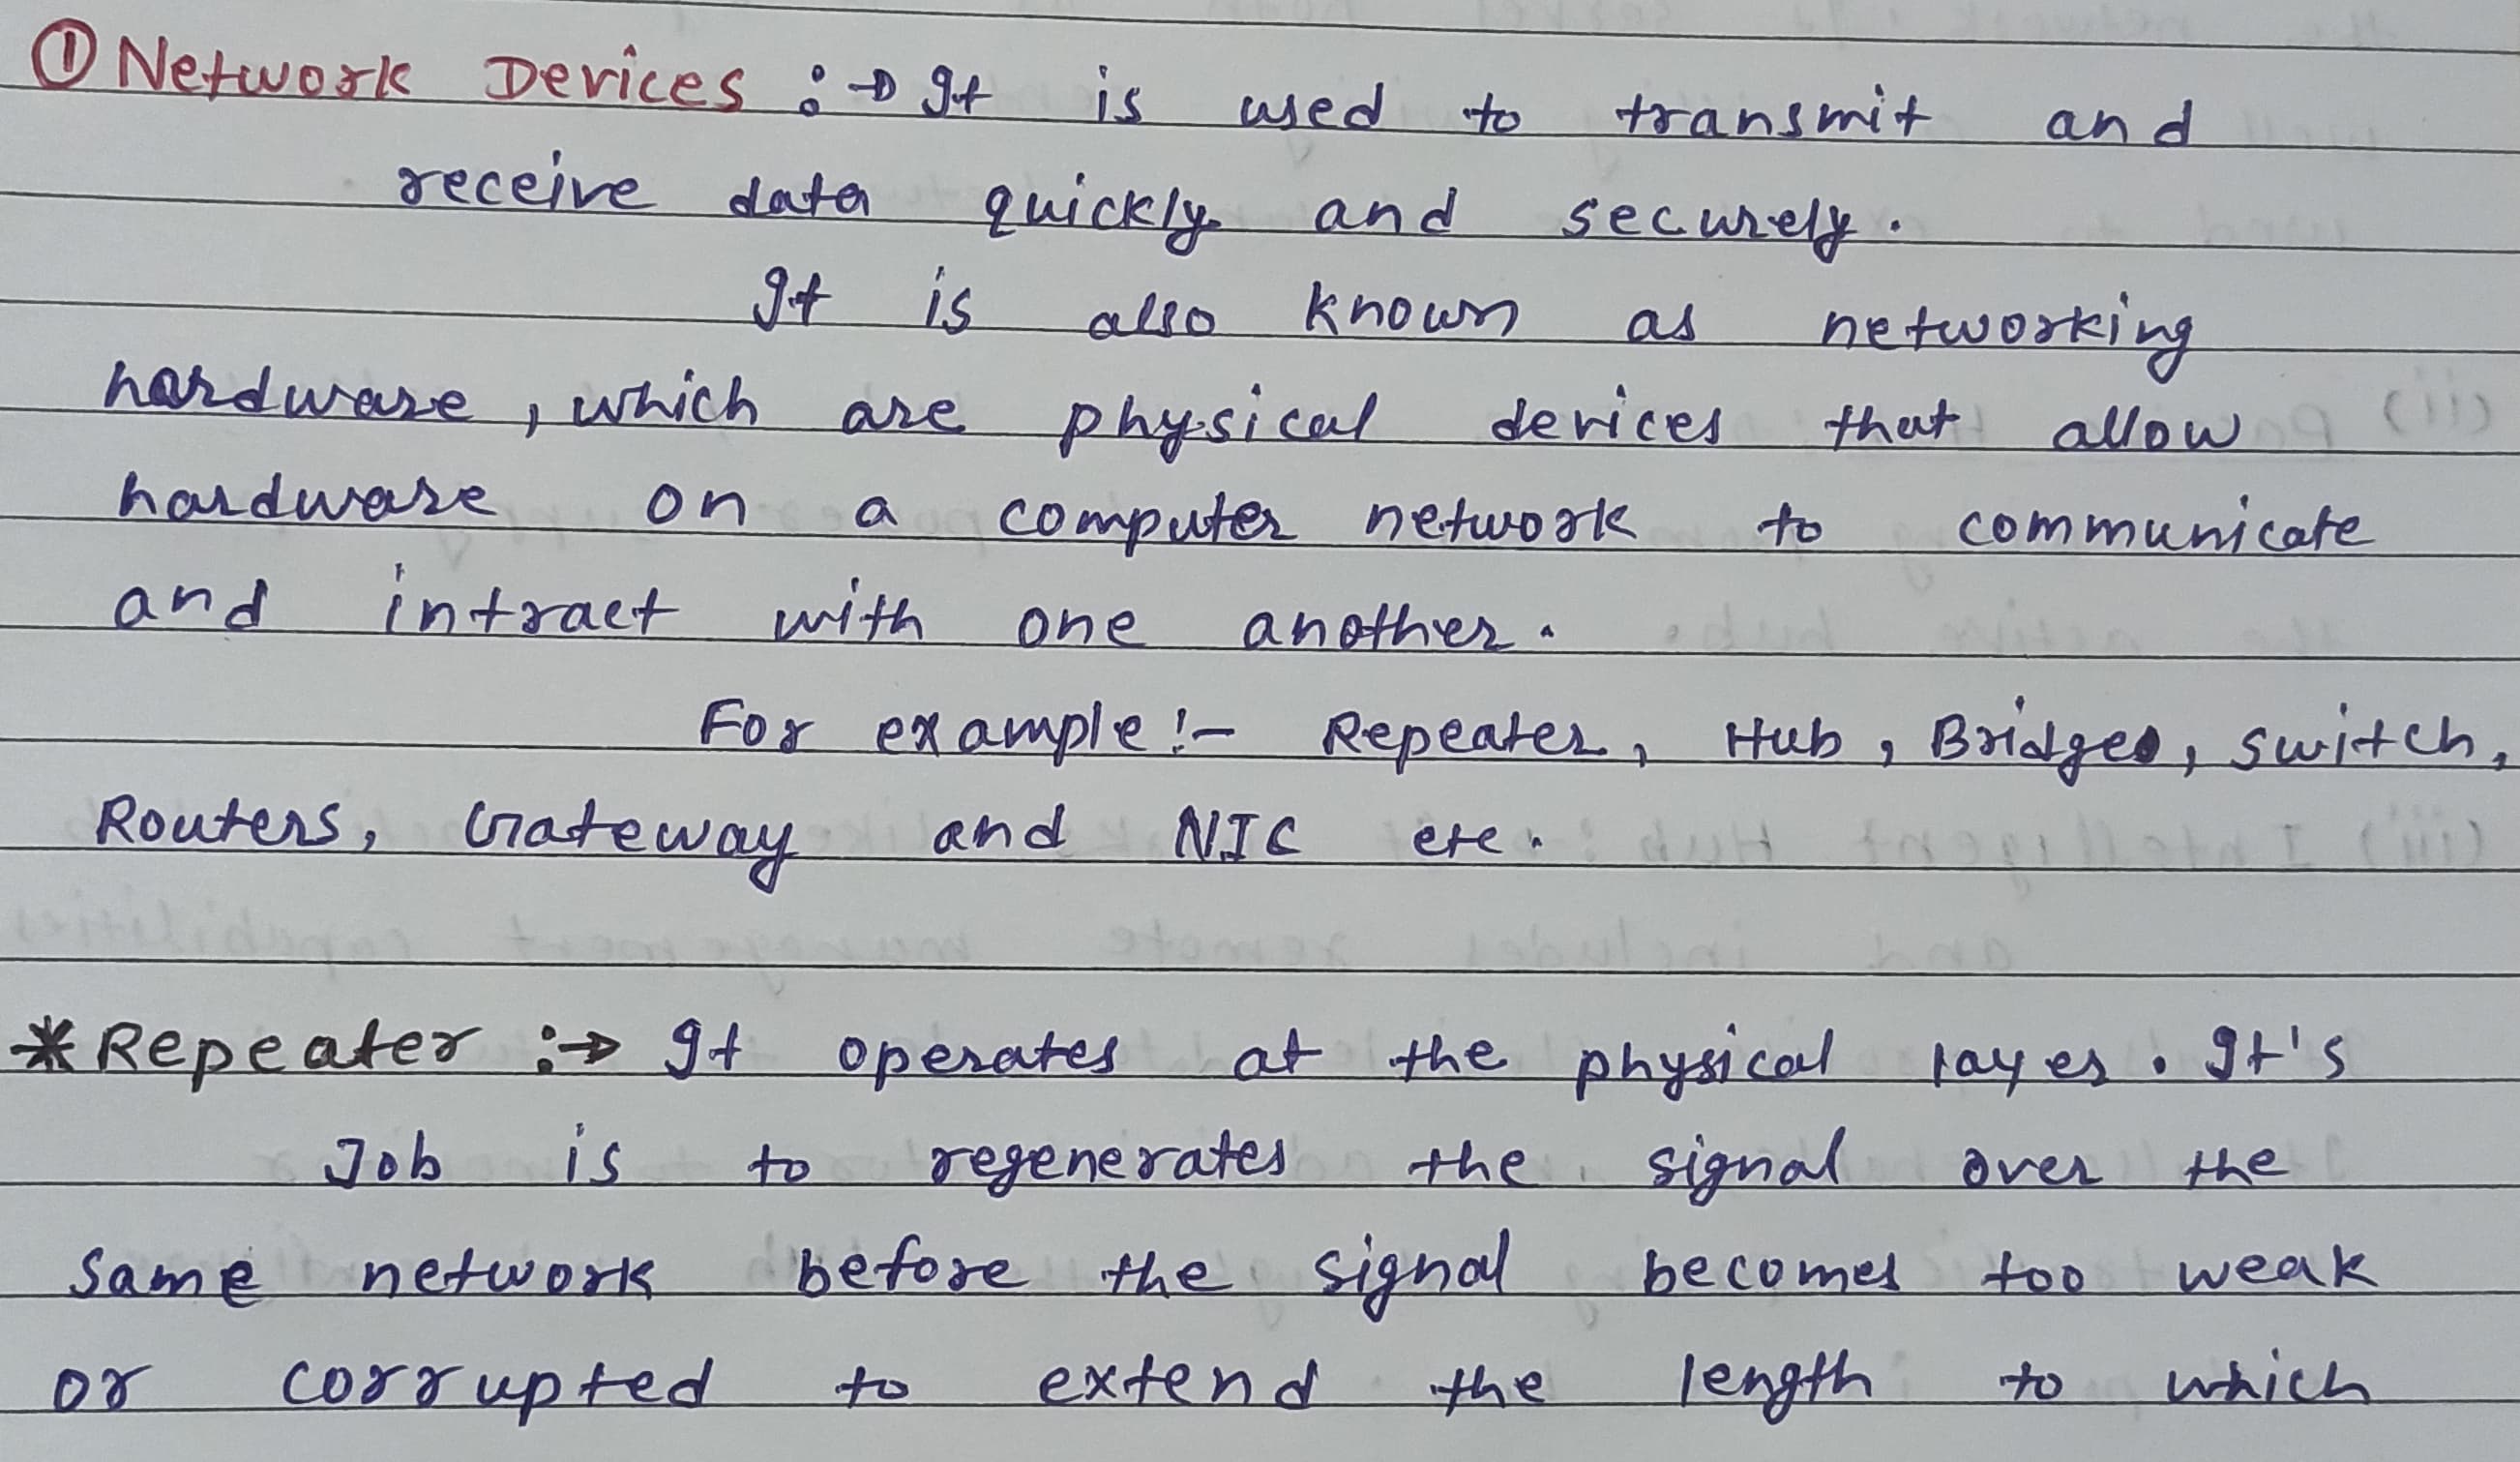 ① Network Devices :→ It is used to transmit and
receive data quickly and securely.
It is also known as networking
hardware, which are physical devices that allow
hardware on a computer network to communicate
and intract with one another.
For example :- Repeater, Hub, Bridges, switch,
Routers, Gateway and NIC etc.
* Repeater :→ It operates at the physical layer. It's
Job is to regenerates the signal over the
same network before the signal becomes too weak
or corrupted to extend the length to which